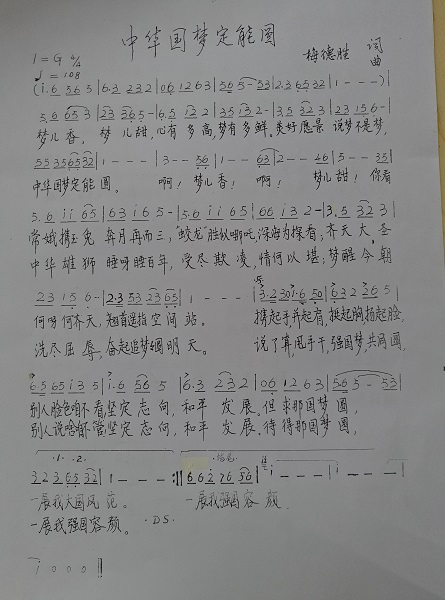 中华国梦定能圆
1=G 4/4
♩=108
梅德胜 词曲
(i.6 56 5|6.3 232|06 12 63|565-53|2.3 6532|1---)
5.6 653|23 565-|6.5 122|35 132-|3.5 323|23 156-|
梦儿香, 梦儿甜,心有多高,梦有多鲜.美好愿景 说梦不是梦,
55356532|1---|3--56|1--63|2--46|5--35|
中华国梦定能圆。 啊! 梦儿香! 啊! 梦儿甜! 你看
5.6 ii65|63165-|5.6 ii65|66132-|3.5 323|
常娥携玉兔 奔月再而三,"蛟龙"胜似哪吒,深海为探看;齐天大圣
中华雄狮 睡呀睡百年, 受尽欺凌,情何以堪;梦醒今朝
23 156-|2.3 53 2365|1---
何呀何齐天, 知首遥指空间站。 携起手,并起肩,挺起胸,扬起脸,
洗尽屈辱,奋起追梦明天。 说了算,甩手干,强国梦,共同圆,
6.5 65i35|i.6 565|6.3 232|06 1263|565-53|
别人脸色咱不看,坚定志向,和平发展,但求那国梦圆,
别人说啥咱不管,坚定志向,和平发展,待得那国梦圆,
·1·2· ·结尾·
323 6532|1---:‖
一展我大国风范。 一展我强国容颜.
一展我强国容颜。 ·D.S.
i000‖